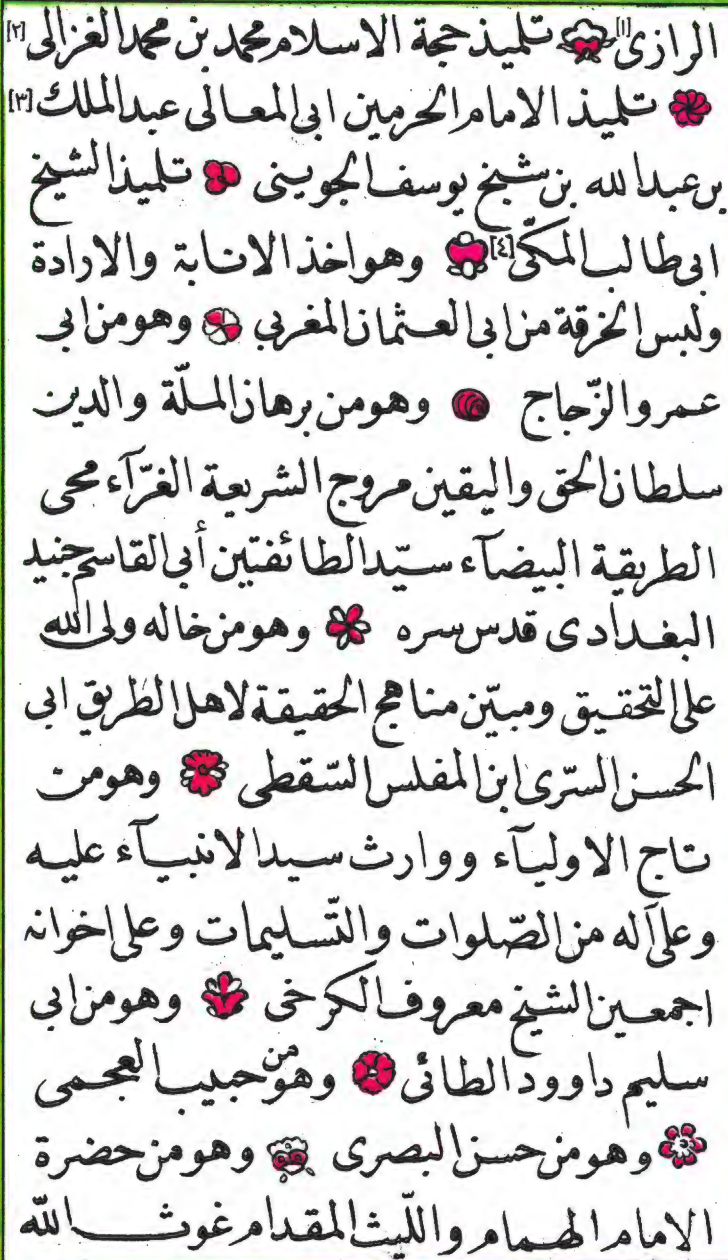 الرازى[١] تلميذ حجة الاسلام محمد بن محمد الغزالى[٢]
تلميذ الامام الحرمين ابى المعالى عبد الملك[٣]
بن عبد الله بن شيخ يوسف الجوينى تلميذ الشيخ
ابى طالب المكّى[٤] وهو اخذ الانابة والارادة
ولبس الخرقة من ابى العثمان المغربى وهو من ابى
عمرو الزّجاج وهو من برهان الملّة والدين
سلطان الحق واليقين مروج الشريعة الغرّآء محى
الطريقة البيضآء سيّد الطائفتين أبى القاسم جنيد
البغدادى قدس سره وهو من خاله ولى الله
على التحقيق ومبيّن مناهج الحقيقة لاهل الطريق ابى
الحسن السرّى ابن المفلس السّقطى وهو من
تاج الاوليآء ووارث سيد الانبيآء عليه
وعلى آله من الصّلوات والتّسليمات وعلى اخوانه
اجمعين الشيخ معروف الكرخى وهو من ابى
سليم داوود الطائى وهو من حبيب العجمى
وهو من حسن البصرى وهو من حضرة
الامام الهمام والليث المقدام غوث الله